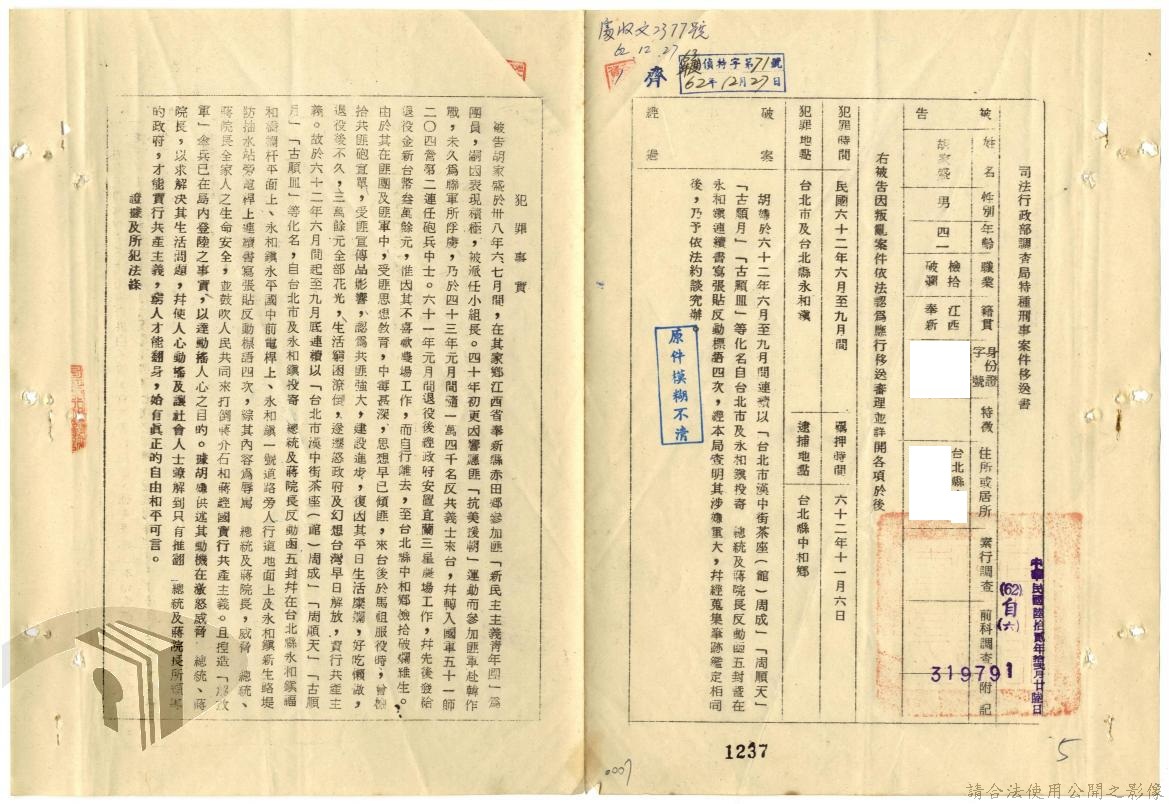 司法行政部調查局特種刑事案件移送書
被告
姓名 性別 年齡 職業 籍貫 身份證字號 特徵 住所或居所 案行調查 前科調查 附記
胡家盛 男 四一 檢拾破爛 江西奉新 台北縣
右被告因叛亂案件依法認爲應行移送審理並詳開各項於後
犯罪時間 民國六十二年六月至九月間 羈押時間 六十二年十一月六日
犯罪地點 台北市及台北縣永和鎮 逮捕地點 台北縣中和鄉
破案經過
胡嫌於六十二年六月至九月間連續以「台北市漢中街茶座(館)周成」「周順天」
「古願月」「古願皿」等化名自台北市及永和鎮投寄 總統及蔣院長反動函五封並在
永和鎮連續書寫張貼反動標語四次,經本局查明其涉嫌重大,幷經蒐集筆跡鑑定相同
後,乃予依法約談究辦。
中華民國陸拾貳年拾貳月廿陸日
(62)自(六)
319791
處收文2377號
62.12.27
偵特字第71號
62年12月27日
齊
原件模糊不清
5
1237
0007
犯罪事實
被告胡家盛於卅八年六七月間,在其家鄉江西省奉新縣赤田鄉參加匪「新民主主義靑年團」爲
團員,嗣因表現積極,被派任小組長。四十年初更因響應匪「抗美援朝」運動而參加匪軍赴韓作
戰,未久爲聯軍所俘虜,乃於四十三年元月間隨一萬四千名反共義士來台,幷轉入國軍五十一師
二〇四營第二連任砲兵中士。六十一年元月間退役後經政府安置宜蘭三星農場工作,幷先後發給
退役金新台幣叁萬餘元,惟因其不喜歡農場工作,而自行離去,至台北縣中和鄉檢拾破爛維生。
由於其在匪團及匪軍中,受匪思想敎育,中毒甚深,思想早已傾匪,來台後於馬祖服役時,曾檢
拾共匪砲宣單,受匪宣傳品影響,認爲共匪強大,建設進步,復因其平日生活糜爛,好吃懶做,
退役後不久,三萬餘元全部花光,生活窮困潦倒,遂遷怒政府及幻想台灣早日解放,實行共產主
義。故於六十二年六月間起至九月底連續以「台北市漢中街茶座(館)周成」「周順天」「古願
月」「古願皿」等化名,自台北市及永和鎮投寄 總統及蔣院長反動函五封幷在台北縣永和鎮福
和橋欄杆平面上、永和鎮永平國中前電桿上、永和鎮一號道路旁人行道地面上及永和鎮新生路堤
防抽水站旁電桿上連續書寫張貼反動標語四次,綜其內容爲辱罵 總統及蔣院長,威脅 總統、
蔣院長全家人之生命安全,並鼓吹人民共同來打倒蔣介石和蔣經國實行共產主義。且揑造「解放
軍」傘兵已在島內登陸之事實,以達動搖人心之目的。據胡嫌供述其動機在激怒威脅 總統、蔣
院長,以求解決其生活問題,幷使人心動搖及讓社會人士瞭解到只有推翻 總統及蔣院長所領導
的政府,才能實行共產主義,窮人才能翻身,始有眞正的自由和平可言。
證據及所犯法條
請合法使用公開之影像